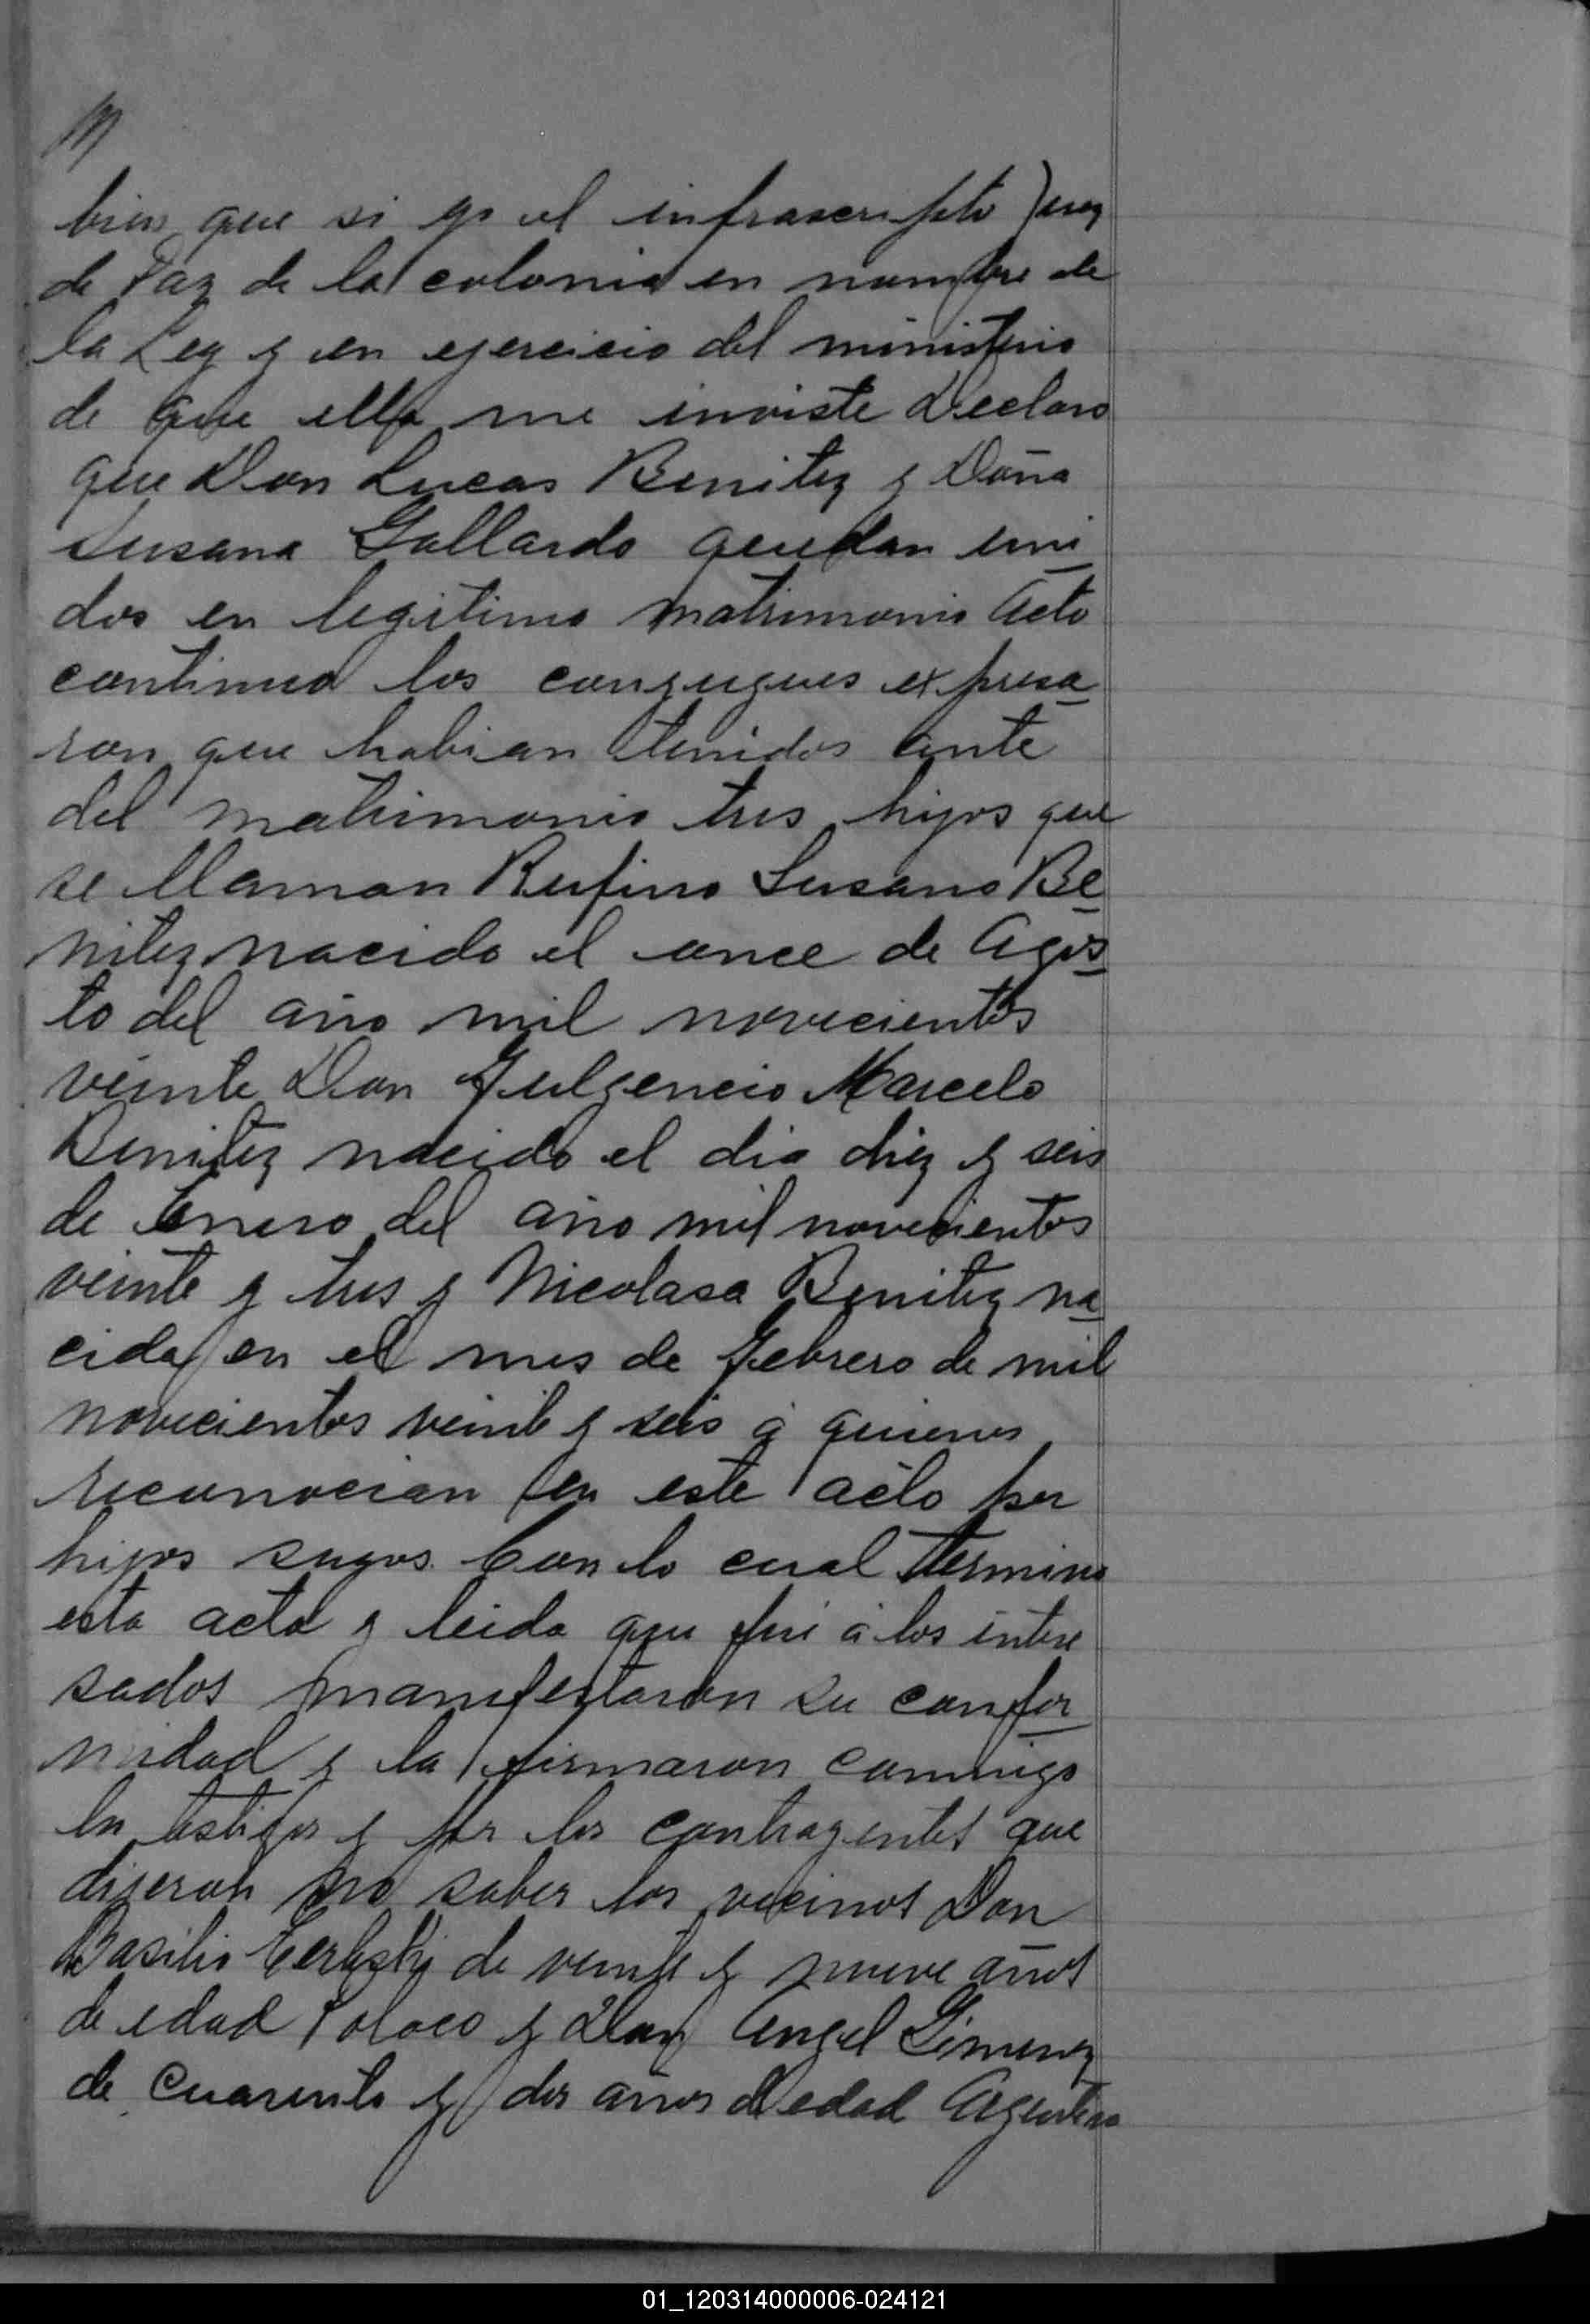 bien que si yo el infrascripto Juez
de Paz de la colonia en nombre de
la Ley y en ejercicio del ministerio
de que ella me inviste Declaro
que Don Lucas Benitez y Doña
Susana Gallardo quedan uni
dos en legitimo matrimonio Acto
continuo los conyugues expresa
ron que habian tenidos ante
del matrimonio tres hijos que
se llaman Rufino Susano Be
nitez nacido el once de Agos
to del año mil novecientos
veinte Don Fulgencio Marcelo
Benitez nacido el dia diez y seis
de Enero del año mil novecientos
veinte y tres y Nicolasa Benitez na
cida en el mes de Febrero de mil
novecientos veinte y seis á quienes
reconocian en este acto por
hijos suyos. Con lo cual termino
esta acta y leida que fué á los intere
sados manifestaron su confor
midad y la firmaron conmigo
los testigos y por los contrayentes que
dijeron no saber los vecinos Don
Basilio de veinte y nueve años
de edad Polaco y Don Angel Gimenez
de cuarenta y dos años de edad Argentino
01_120314000006-024121